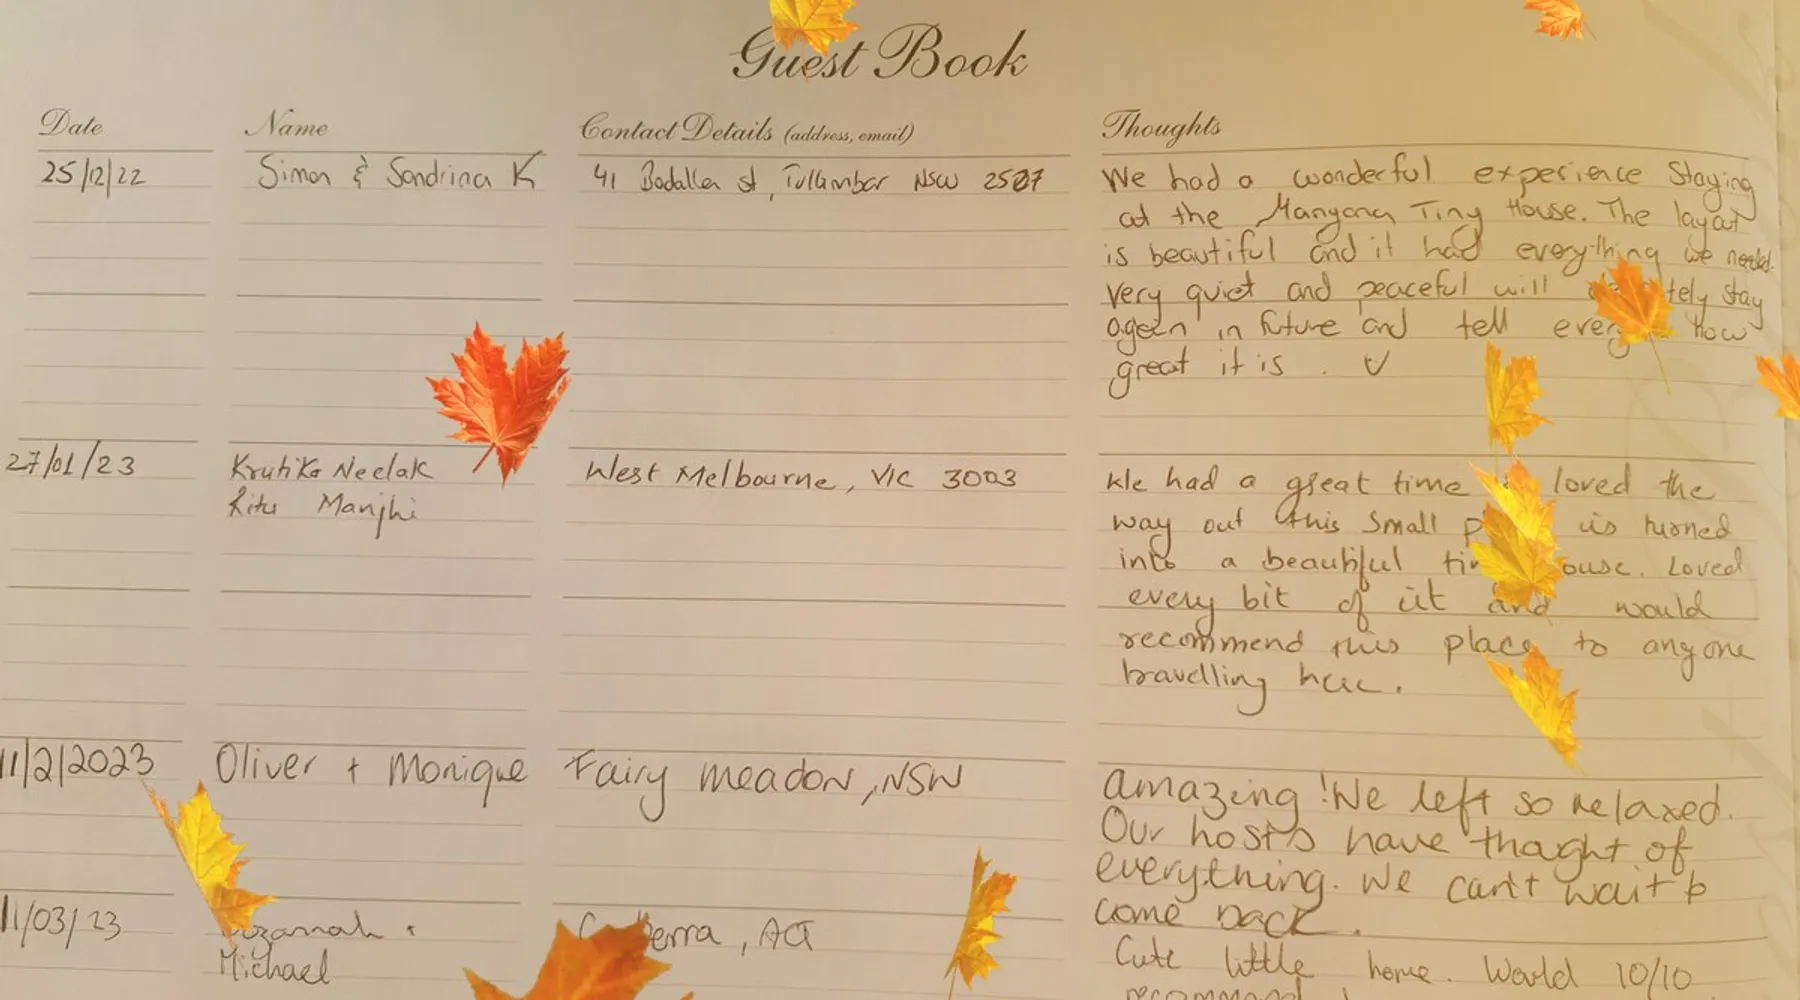 Guest Book
Date Name Contact Details (address, email) Thoughts
25/12/22 Simon & Sandrina K 41 Badallen st, Tullimbar NSW 2527 We had a wonderful experience Staying
at the Manyana Tiny House. The layout
is beautiful and it had everything we needed.
Very quiet and peaceful will stay
again in future and tell how
great it is.
27/01/23 Krutika Neelak West Melbourne, VIC 3003 We had a great time loved the
Ritu Manjhi way out this Small is turned
into a beautiful Loved
every bit of it and would
recommend this place to anyone
travelling here.
11/2/2023 Oliver + Monique Fairy meadow, NSW amazing! We left so relaxed.
Our hosts have thaght of
everything. We can't wait to
come back.
11/03/23 , ACT Cute little home. Would 10/10
Michael recommend